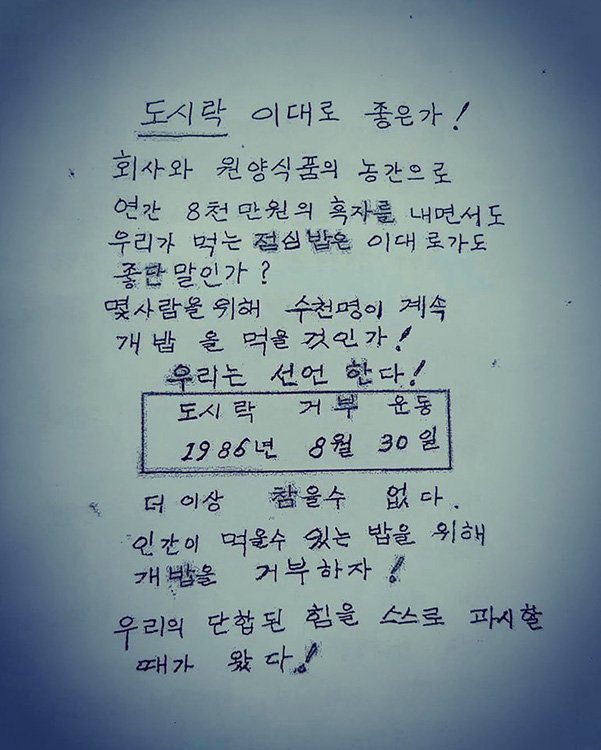 도시락 이대로 좋은가!
회사와 원양식품의 농간으로
연간 8천만원의 흑자를 내면서도
우리가 먹는 점심밥은 이대로가도
좋단말인가?
몇사람을위해 수천명이 계속
개밥을 먹을것인가!
우리는 선언한다!
도시락 거부 운동
1986년 8월 30일
더이상 참을수 없다.
인간이 먹을수 있는 밥을 위해
개밥을 거부하자!
우리의 단합된 힘을 스스로 과시할
때가 왔다!